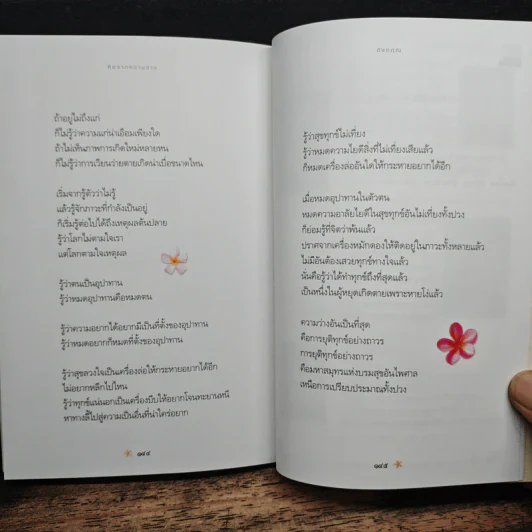 ถ้าอยู่ไม่ถึงแก่
ก็ไม่รู้ว่าความแก่น่าเอือมเพียงใด
ถ้าไม่เห็นภาพการเกิดใหม่หลายหน
ก็ไม่รู้ว่าการเวียนว่ายตายเกิดน่าเบื่อขนาดไหน
เริ่มจากรู้ตัวว่าไม่รู้
แล้วรู้จักภาวะที่กำลังเป็นอยู่
ก็เริ่มรู้ต่อไปได้ถึงเหตุผลต้นปลาย
รู้ว่าโลกไม่ตามใจเรา
แต่โลกตามใจเหตุผล
รู้ว่าตนเป็นอุปาทาน
รู้ว่าหมดอุปาทานคือหมดตน
รู้ว่าความอยากได้อยากมีเป็นที่ตั้งของอุปาทาน
รู้ว่าหมดอยากก็หมดที่ตั้งของอุปาทาน
รู้ว่าสุขลวงใจเป็นเครื่องล่อให้กระหายอยากได้อีก
ไม่อยากหลีกไปไหน
รู้ว่าทุกข์แน่นอกเป็นเครื่องบีบให้อยากโจนทะยานหนี
หาทางลี้ไปสู่ความเป็นอื่นที่น่าใคร่อยาก
๑๙๔
รู้ว่าสุขทุกข์ไม่เที่ยง
รู้ว่าหมดความไยดีสิ่งที่ไม่เที่ยงเสียแล้ว
ก็หมดเครื่องล่ออันใดให้กระหายอยากได้อีก
เมื่อหมดอุปาทานในตัวตน
หมดความอาลัยไยดีในสุขทุกข์อันไม่เที่ยงทั้งปวง
ก็ย่อมรู้ที่จิตว่าพ้นแล้ว
ปราศจากเครื่องหมักดองให้ติดอยู่ในภาวะทั้งหลายแล้ว
ไม่มีอันต้องเสวยทุกข์ทางใจแล้ว
นั่นคือรู้ว่าได้ทำทุกข์ถึงที่สุดแล้ว
เป็นหนึ่งในผู้หยุดเกิดตายเพราะหายโง่แล้ว
ความว่างอันเป็นที่สุด
คือการยุติทุกข์อย่างถาวร
การยุติทุกข์อย่างถาวร
คือมหาสมุทรแห่งบรมสุขอันไพศาล
เหนือการเปรียบประมาณทั้งปวง
๑๙๕